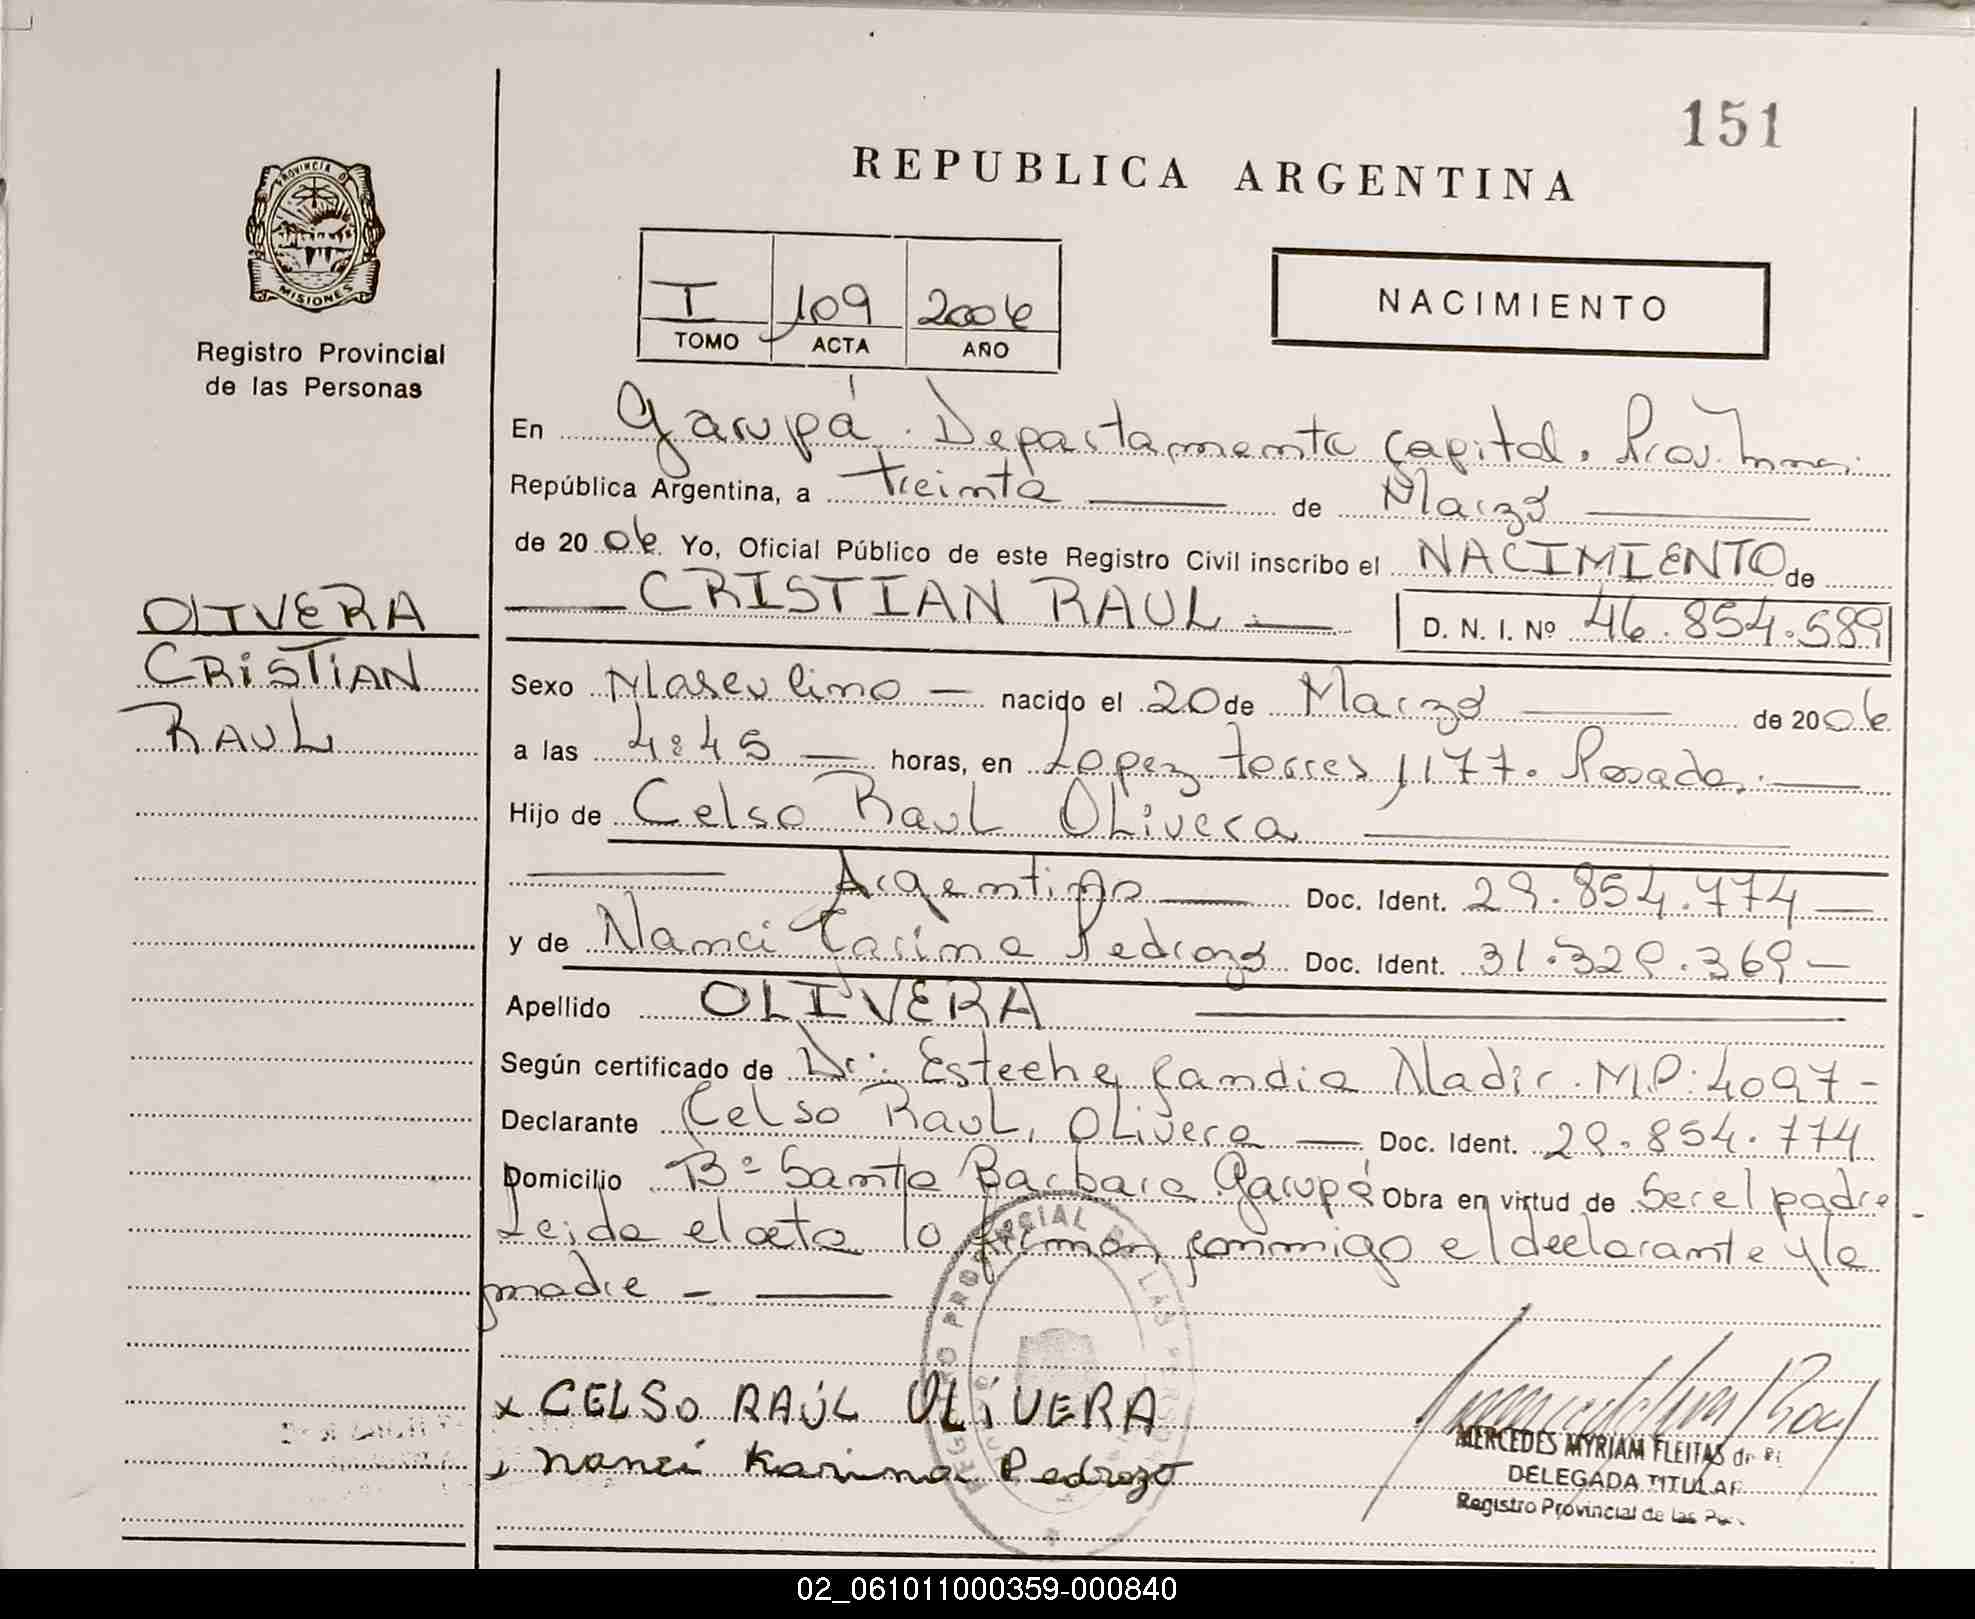 151
REPUBLICA ARGENTINA
PROVINCIA D
MISIONES
Registro Provincial
de las Personas
I 109 2006
TOMO ACTA AÑO
NACIMIENTO
En Garupá. Departamento Capital. Prov.
República Argentina, a treinta de Marzo
de 2006. Yo, Oficial Público de este Registro Civil inscribo el NACIMIENTO de
CRISTIAN RAUL.
D. N. I. Nº 46.854.589
OLIVERA
CRISTIAN
RAUL
Sexo Masculino — nacido el 20 de Marzo de 2006
a las 4:45 — horas, en Lopez torres 1177. Posadas.
Hijo de Celso Raul Olivera
Argentino Doc. Ident. 29.854.774 —
y de Nanci Carina Pedrozo Doc. Ident. 31.329.369 —
Apellido OLIVERA
Según certificado de Dr: Esteche Candia Nadir. M.P: 4097 -
Declarante Celso Raul, Olivera — Doc. Ident. 29.854.774
Domicilio Bº Santa Barbara Garupá Obra en virtud de Ser el padre
Leida el acta lo firman conmigo el declarante y la
madre -
REGISTRO PROVINCIAL DE LAS PERSONAS
x CELSO RAÚL OLIVERA
Nanci Karina Pedrozo
MERCEDES MYRIAM FLEITAS de
DELEGADA TITULAR
Registro Provincial de las
02_061011000359-000840